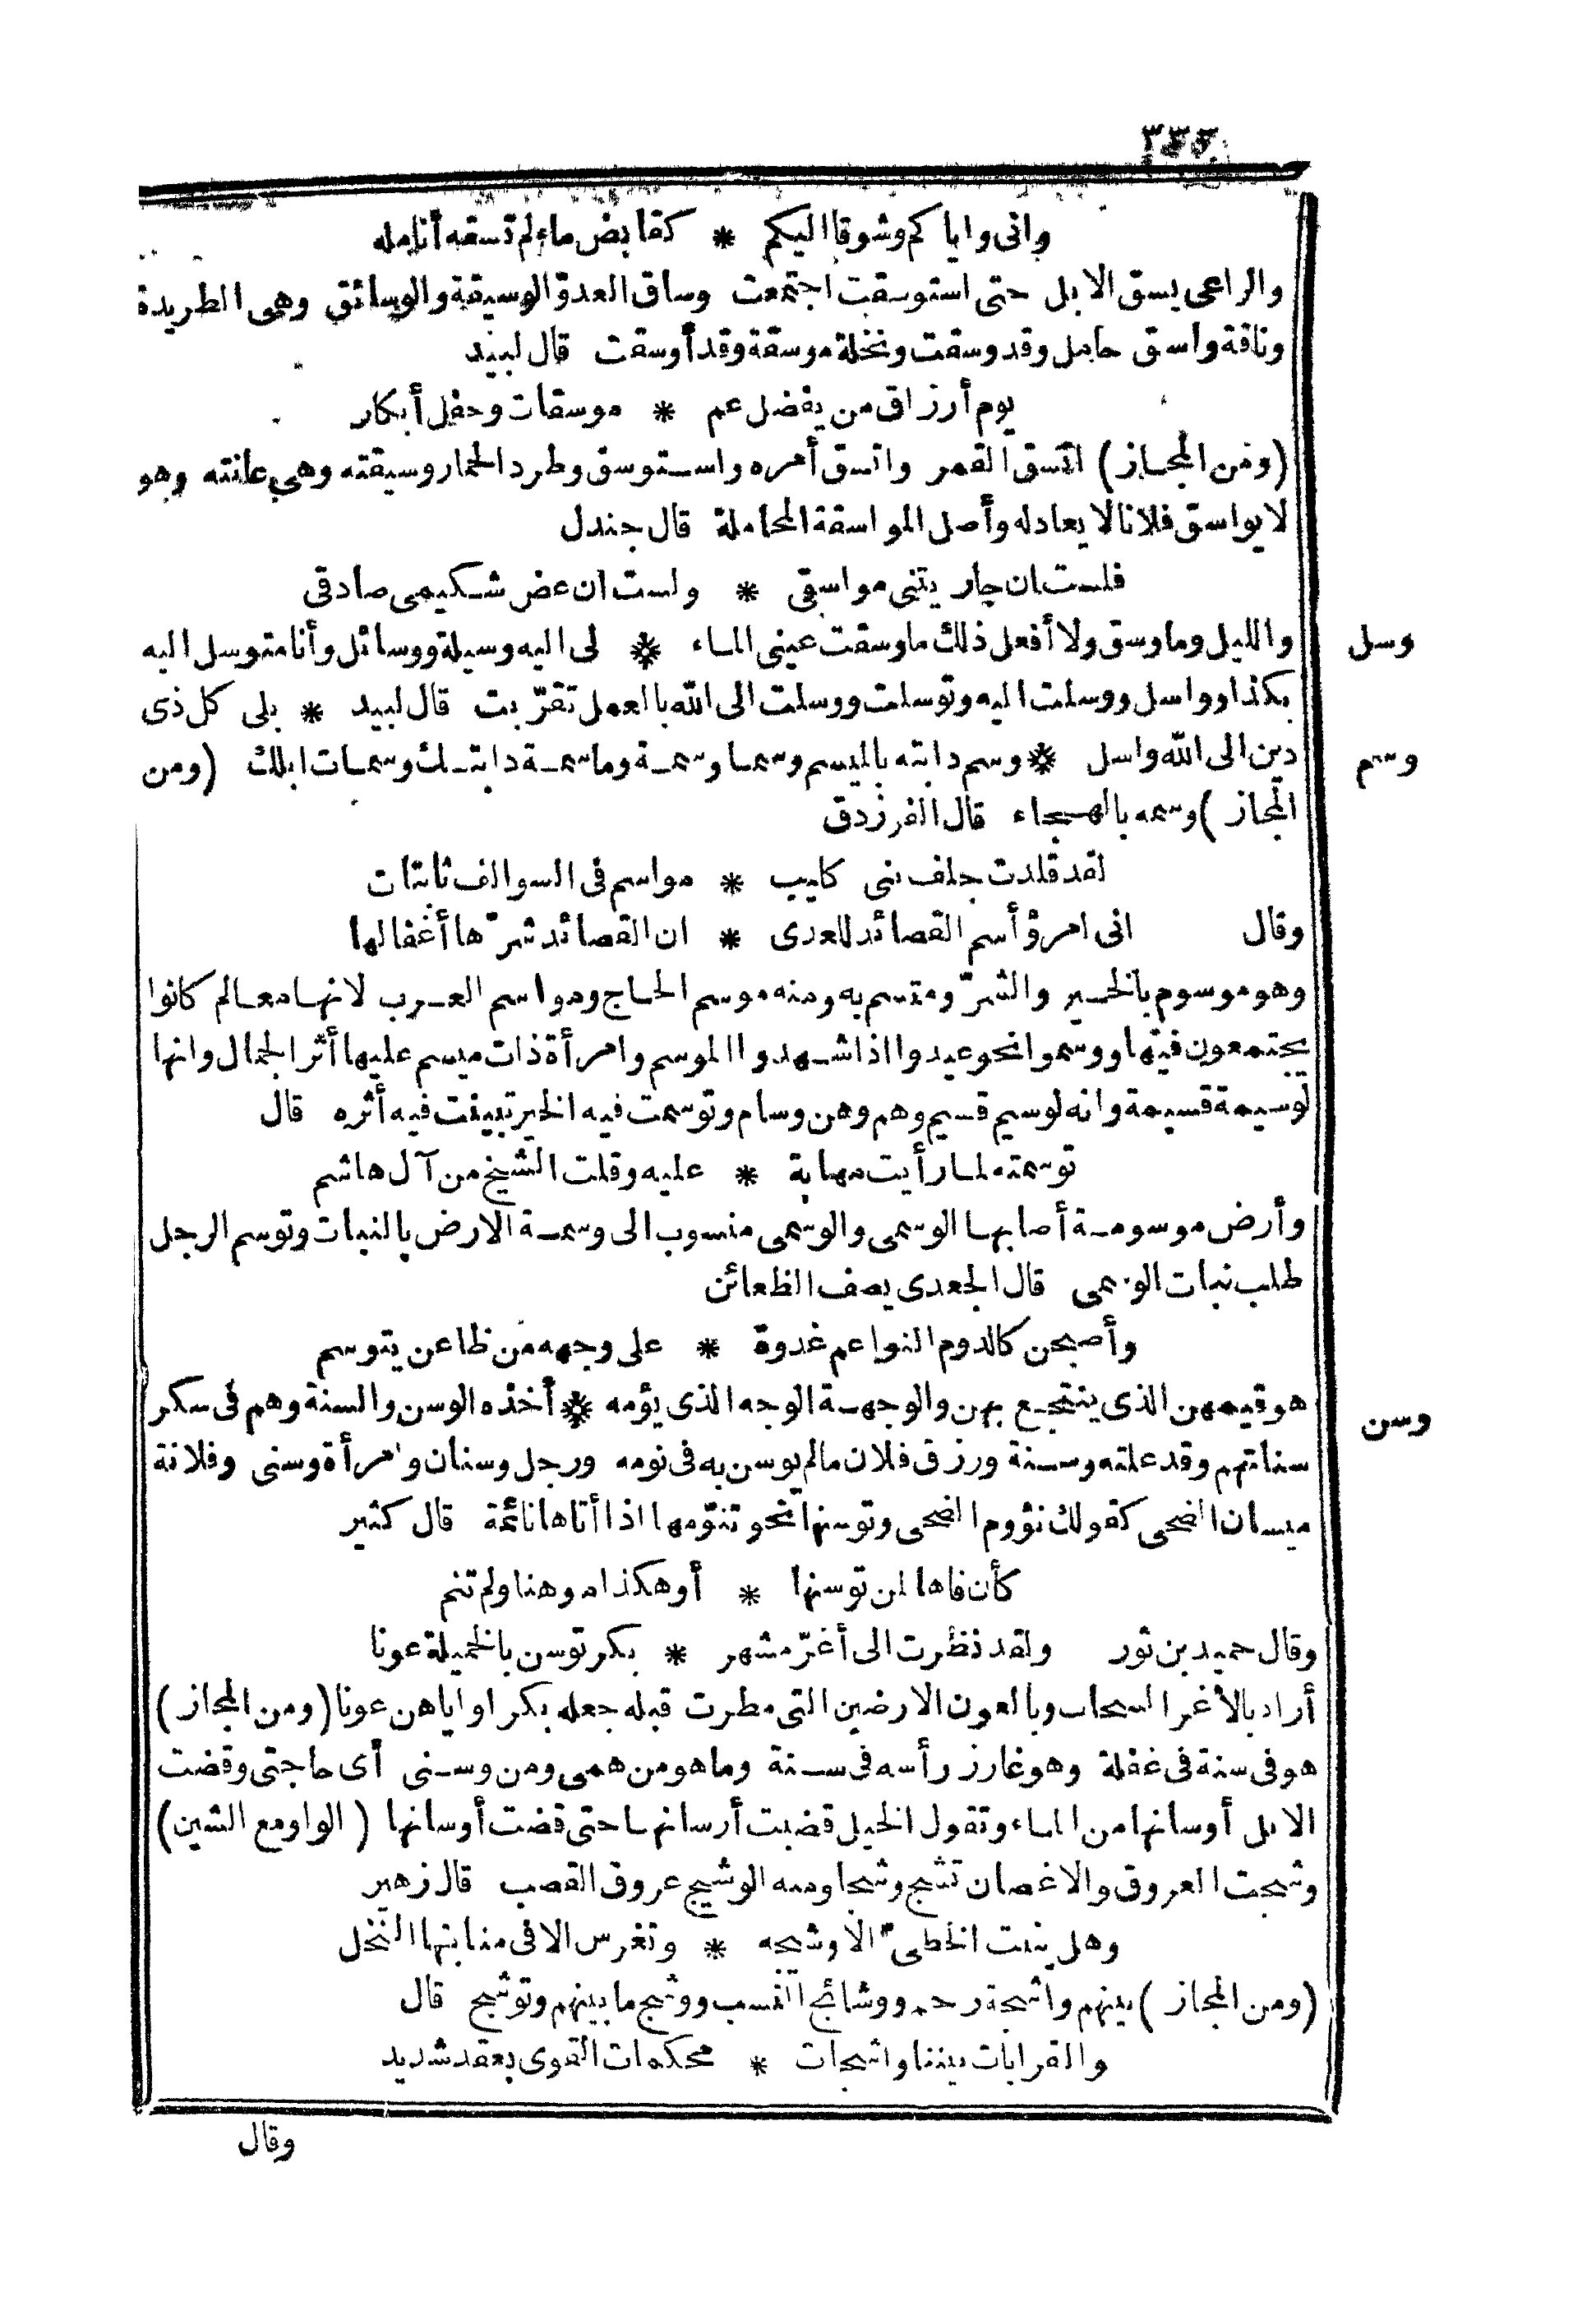 وانى واياكم وشوقا اليكم * كقابض ماء لم تسقه أنامله
والراعى يسق الابل حتى استوسقت اجتمعت وساق العدوّ الوسيقة والوسائق وهى الطريدة
وناقة واسق حامل وقد وسقت ونخلة موسقة وقد أوسقت قال لبيد
يوم أرزاق من يفضل عم * موسقات وحفل أبكار
(ومن المجاز) اتسق القمر واتسق أمره واستوسق وطرد الحمار وسيقته وهى عانته وهو
لا يواسق فلانا لا يعادله وأصل المواسقة المحاملة قال جندل
فلست ان جاريتنى مواسقى * ولست ان عض شكيمى صادقى
وسل
والليل وما وسق ولا أفعل ذلك ما وسقت عينى الماء * لى اليه وسيلة ووسائل وأنا متوسل اليه
بكذا وواسل ووسلت اليه وتوسلت ووسلت الى الله بالعمل تقرّبت قال لبيد * بلى كل ذى
وسم
دين الى الله واسل * وسم دابته بالميسم وسما وسمة وما سمة دابتك وسمات ابلك (ومن
المجاز) وسمه بالهجاء قال الفرزدق
لقد قلدت جلف بنى كليب * مواسم فى السوالف ثابتات
وقال انى امرؤ أسم القصائد للعدى * ان القصائد شرّها أغفالها
وهو موسوم بالخير والشرّ ومتسم به ومنه موسم الحاج ومواسم العرب لانها معالم كانوا
يجتمعون فيها ووسموا نحو عيدوا اذا شهدوا الموسم وامرأة ذات ميسم عليها أثر الجمال وانها
لوسيمة قسيمة وانه لوسيم قسيم وهم وهن وسام وتوسمت فيه الخير تبينت فيه أثره قال
توسمته لما رأيت مهابة * عليه وقلت الشيخ من آل هاشم
وأرض موسومة أصابها الوسمى والوسمى منسوب الى وسمة الارض بالنبات وتوسم الرجل
طلب نبات الوسمى قال الجعدى يصف الظعائن
وأصبحن كالدوم النواعم غدوة * على وجهه من ظاعن يتوسم
وسن
هو قيمهن الذى ينتجع بهن والوجهة الوجه الذى يؤمه * أخذه الوسن والسنة وهم فى سكر
سناتهم وقد علته وسنة ورزق فلان مالم يوسن به فى نومه ورجل وسنان وامرأة وسنى وفلانة
ميسان الضحى كقولك نؤوم الضحى وتوسنها نحو تنوّمها اذا أتاها نائمة قال كثير
كأن فاها لمن توسنها * أو هكذا موهنا ولم تنم
وقال حميد بن ثور ولقد نظرت الى أغرّ مشهر * بكر توسن بالخميلة عونا
أراد بالأغر السحاب وبالعون الارضين التى مطرت قبله جعله بكرا واياهن عونا (ومن المجاز)
هو فى سنة فى غفلة وهو غارز رأسه فى سنة وما هو من همى ومن وسنى أى حاجتى وقضت
الابل أوسانها من الماء وتقول الخيل قضيت أرسانها حتى قضت أوسانها (الواو مع الشين)
وشجت العروق والاغصان تشج وشجا ومنه الوشيج عروق القصب قال زهير
وهل ينبت الخطىّ الا وشيجه * وتغرس الا فى منابتها النخل
(ومن المجاز) بينهم واشجة رحم ووشائج النسب ووشج ما بينهم وتوشج قال
والقرابات بيننا واشجات * محكمات القوى بعقد شديد
وقال